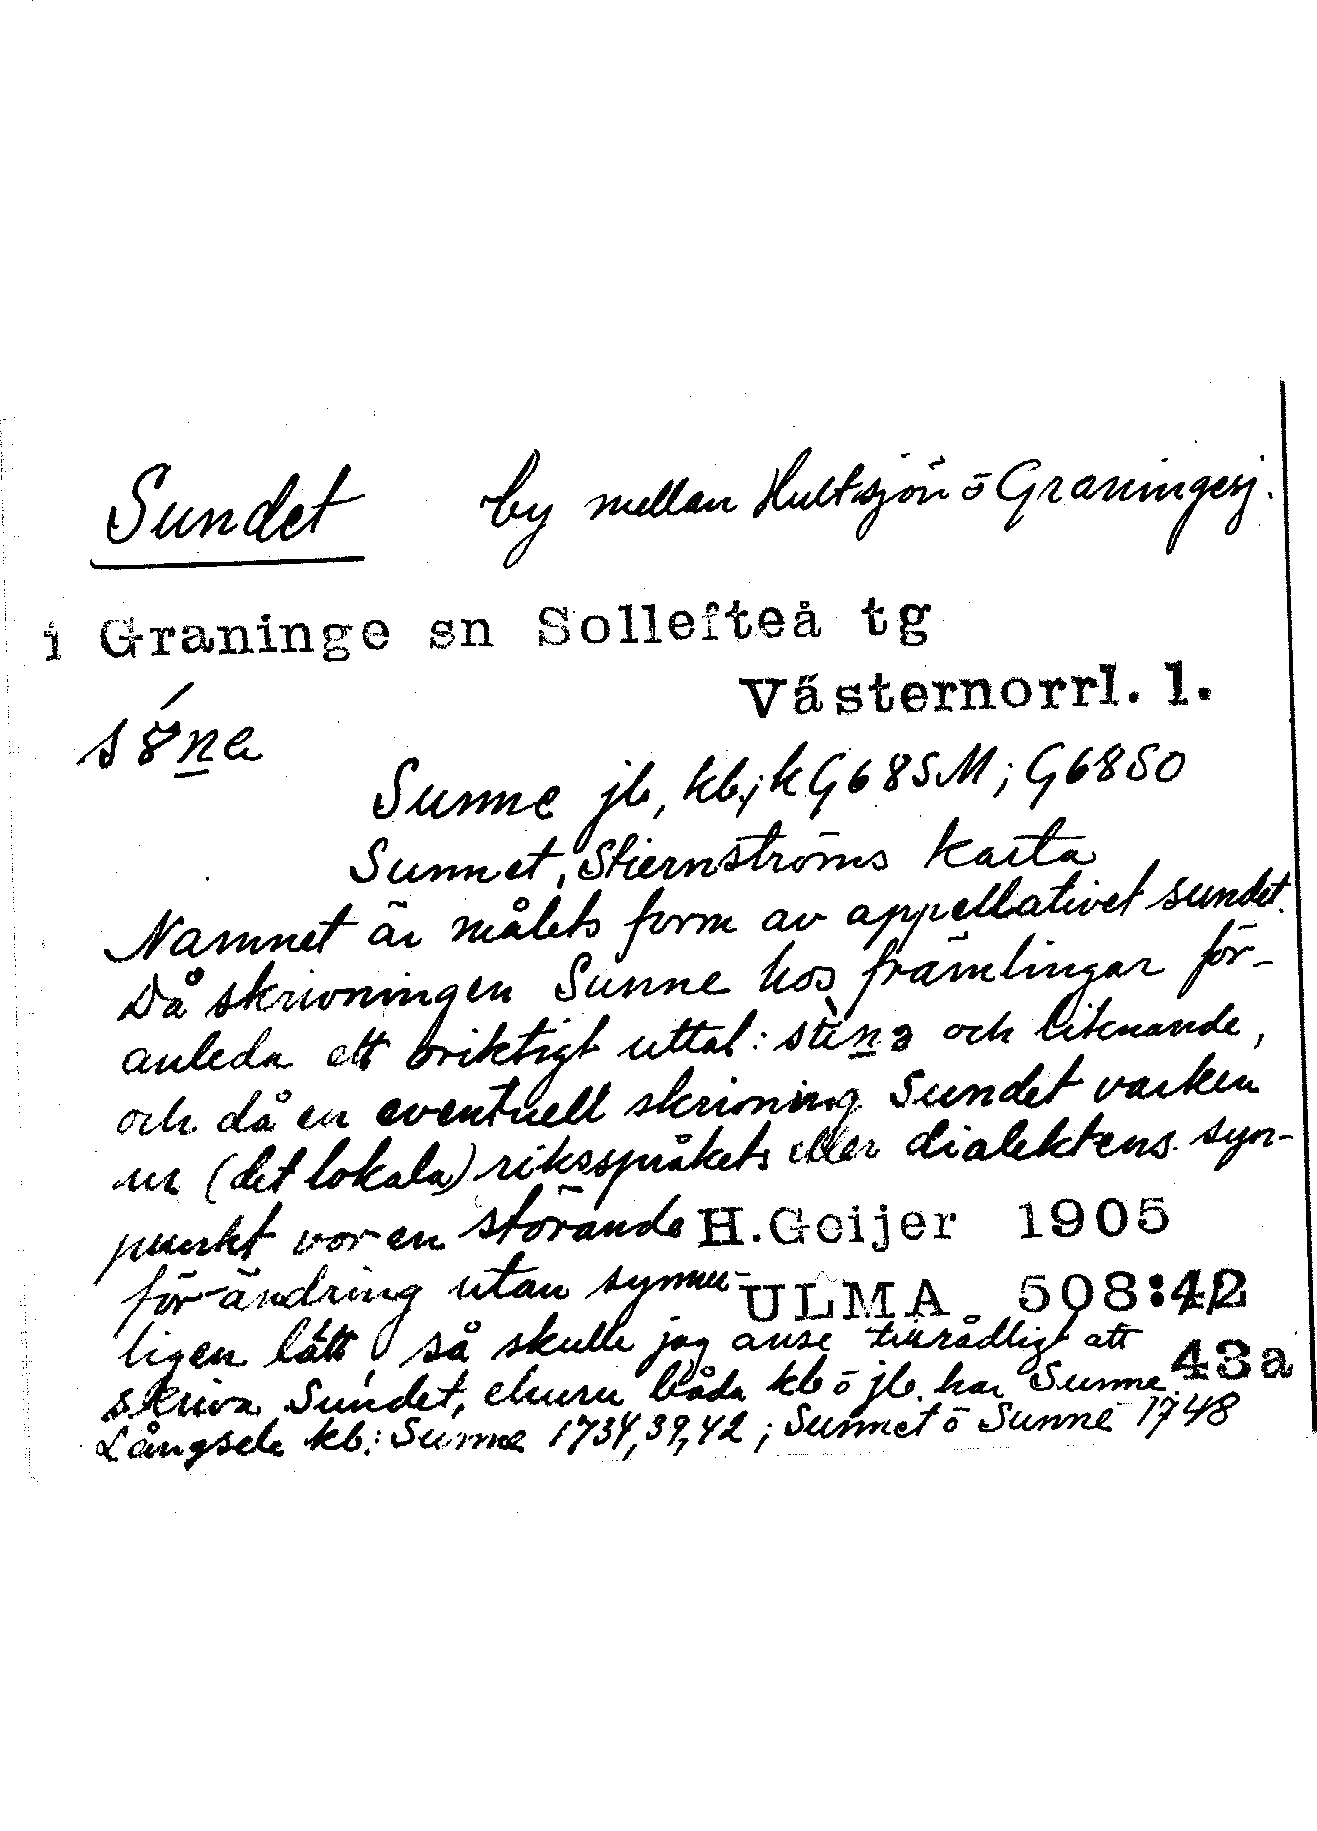 Sundet by mellan Hultsjön ō Graningesj.
i Graninge sn Sollefteå tg
Västernorrl. l.
Sunne jb, kb, k G68SM; G68SO
Sunnet, Stiernströms karta
Namnet är målets form av appellativet sundet.
Då skrivningen Sunne hos främlingar för-
anleda ett oriktigt uttal: och liknande,
och då en eventuell skrivning Sundet varken
ur (det lokala) riksspråkets eller dialektens syn-
punkt vor en störande H.Geijer 1905
för ändring utan synner- ULMA 508:42
ligen lätt, så skulle jag anse tillrådligt att 43a
skriva Sundet, ehuru båda kb ō jb har Sunne
Långsele kb: Sunne 1734,39,42; Sunnet ō Sunne 1748